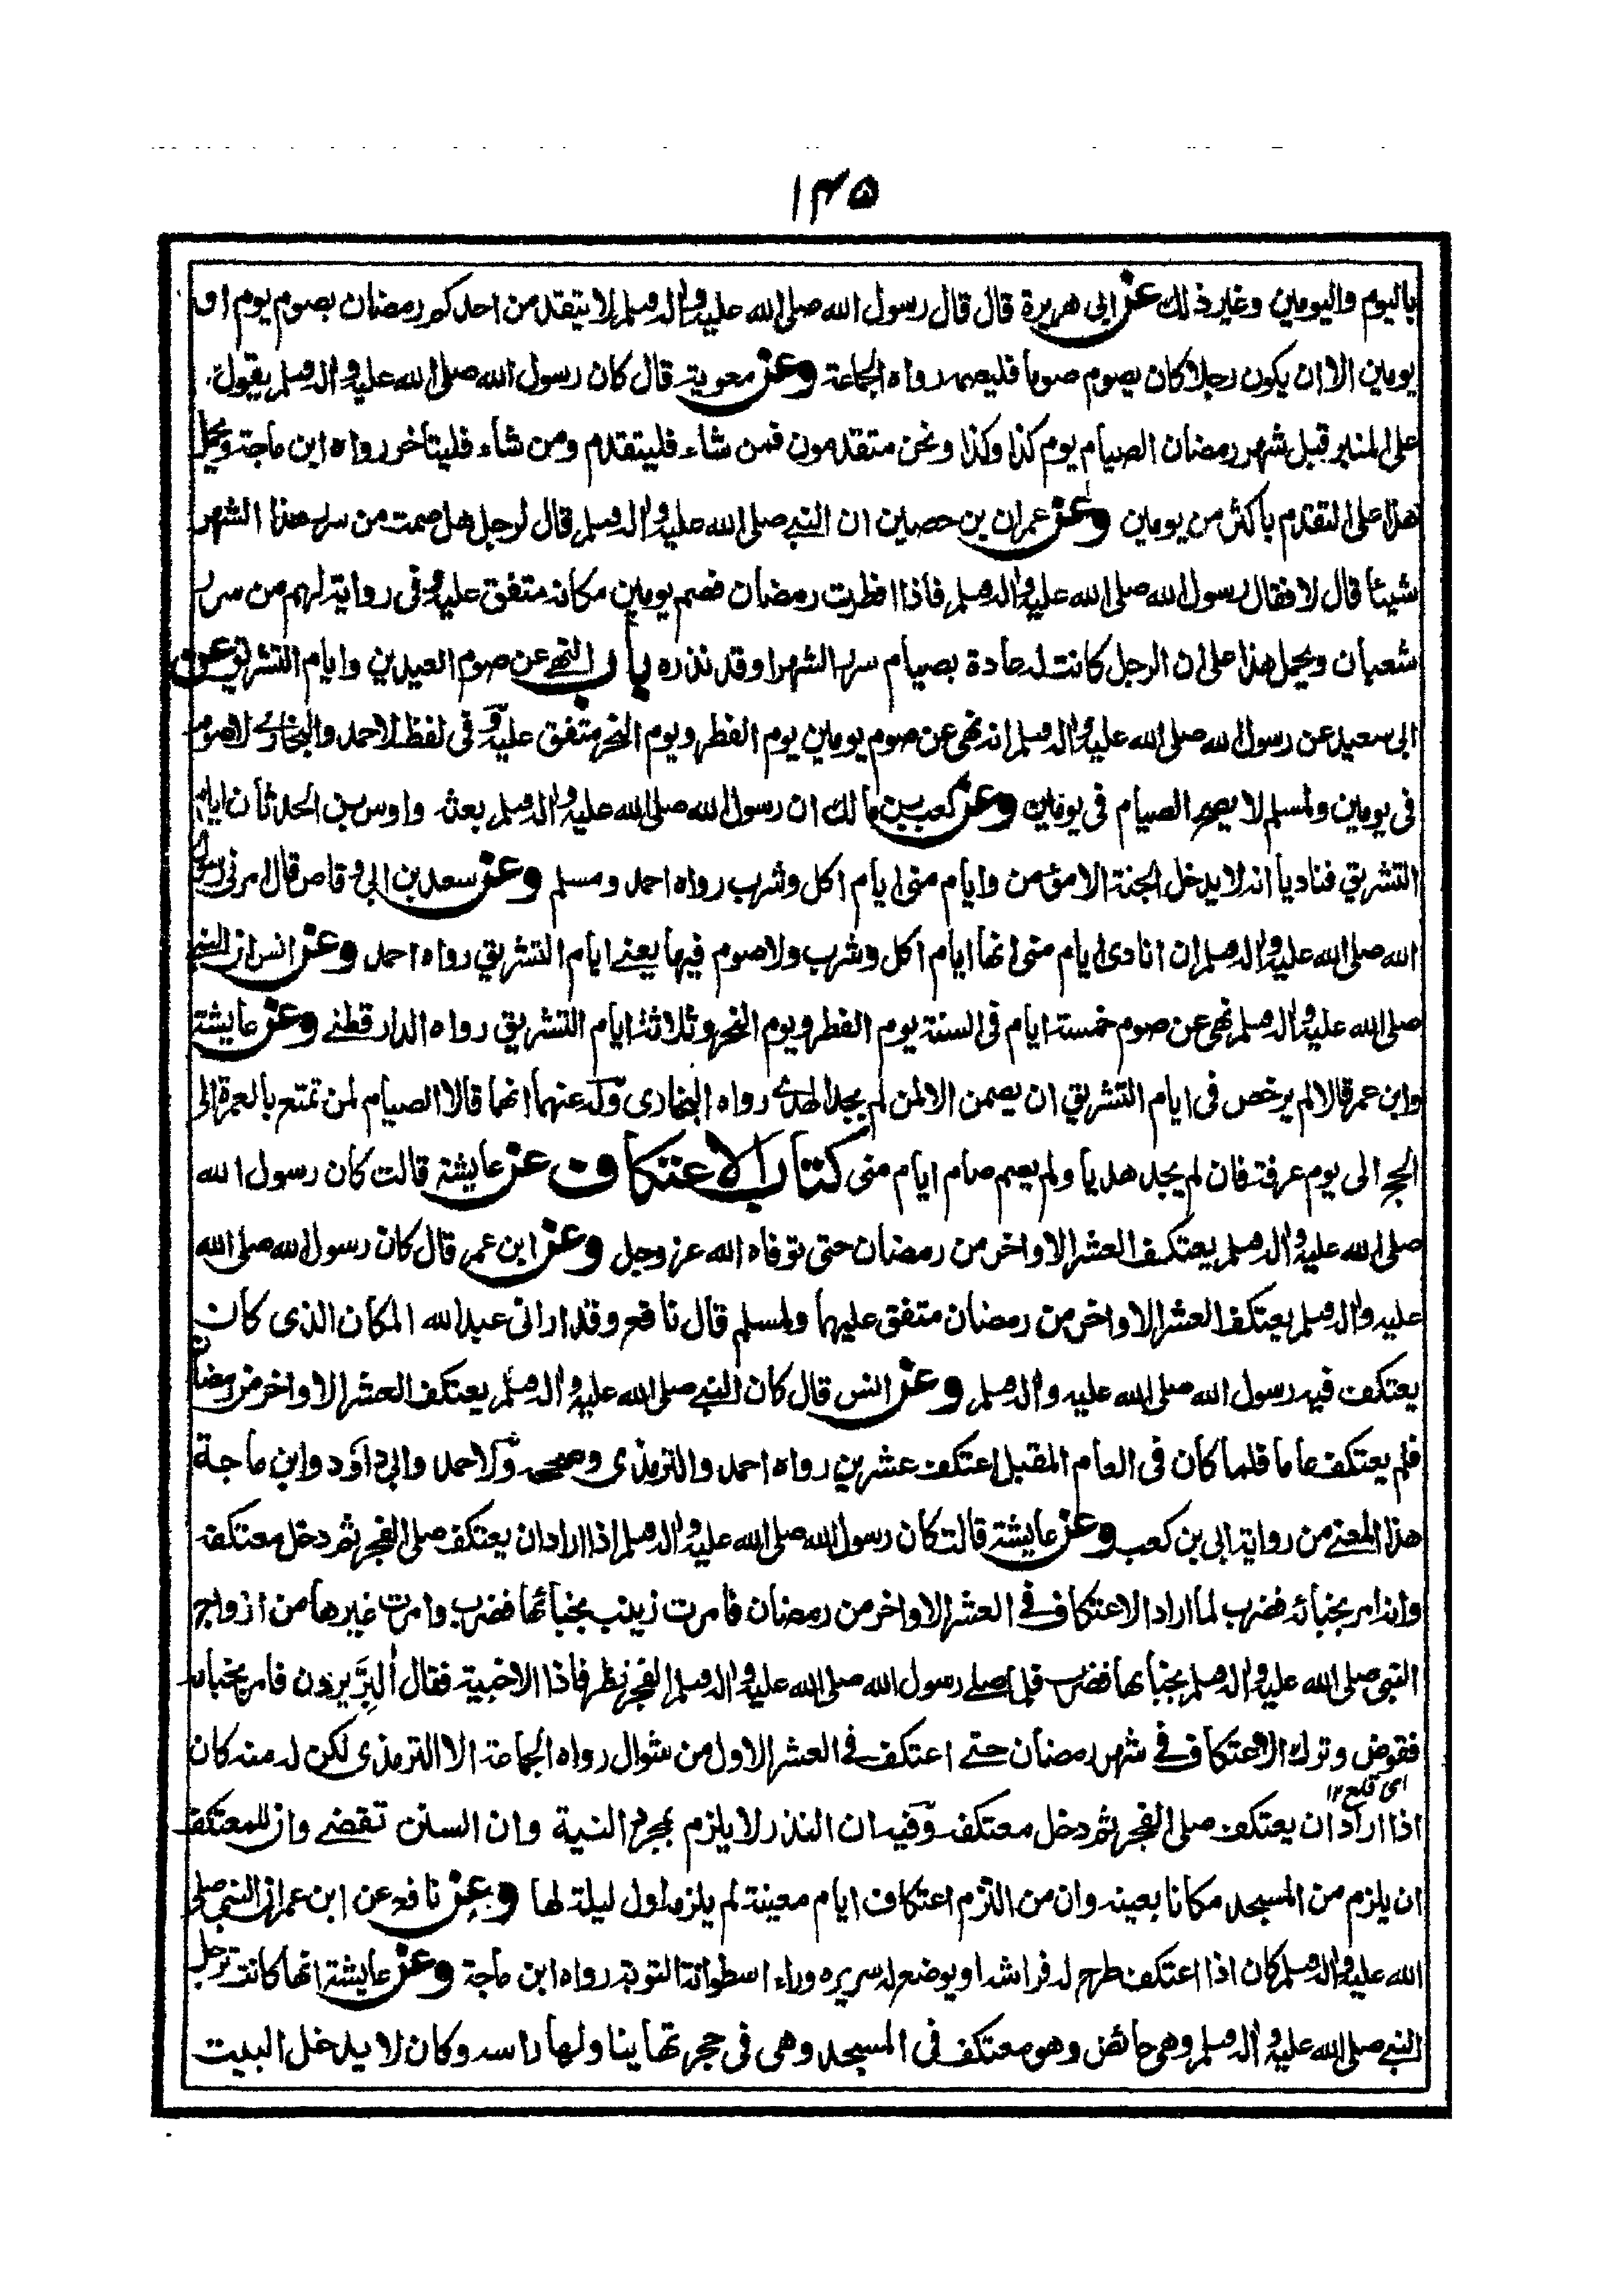 ١٣٥
باليوم واليومين وغير ذلك عن ابى هريرة قال قال رسول الله صلى الله عليه واله وسلم لا يتقدمن احدكم رمضان بصوم يوم او
يومين الا ان يكون رجلا كان يصوم صوما فليصمه رواه الجماعة وعن معوية قال كان رسول الله صلى الله عليه واله وسلم يقول
على المنبر قبل شهر رمضان الصيام يوم كذا وكذا ونحن متقدمون فمن شاء فليتقدم ومن شاء فليتاخر رواه ابن ماجة ويحمل
هذا على التقدم باكثر من يومين وعن عمران بن حصين ان النبي صلى الله عليه واله وسلم قال لرجل هل صمت من سرر هذا الشهر
شيئا قال لا فقال رسول الله صلى الله عليه واله وسلم فاذا افطرت رمضان فصم يومين مكانه متفق عليه وفى رواية لهم من سرر
شعبان ويحمل هذا على ان الرجل كانت له عادة بصيام سرر الشهر او قد نذره باب النهي عن صوم العيدين وايام التشريق عن
ابى سعيد عن رسول الله صلى الله عليه واله وسلم انه نهى عن صوم يومين يوم الفطر ويوم النحر متفق عليه وفى لفظ لاحمد والبخاري لا صوم
فى يومين ولمسلم لا يصح الصيام فى يومين وعن كعب بن مالك ان رسول الله صلى الله عليه واله وسلم بعثه واوس بن الحدثان ايام
التشريق فناديا انه لا يدخل الجنة الا مؤمن وايام منى ايام اكل وشرب رواه احمد ومسلم وعن سعد بن ابى وقاص قال امرنى رسول
الله صلى الله عليه واله وسلم ان انادى ايام منى انها ايام اكل وشرب ولا صوم فيها يعنے ايام التشريق رواه احمد وعن انس ان النبي
صلى الله عليه واله وسلم نهى عن صوم خمسة ايام فى السنة يوم الفطر ويوم النحر وثلاثة ايام التشريق رواه الدارقطنے وعن عايشة
وابن عمر قالا لم يرخص فى ايام التشريق ان يصمن الا لمن لم يجد الهدے رواه البخارى وله عنهما انهما قالا الصيام لمن تمتع بالعمرة الى
الحج الى يوم عرفة فان لم يجد هديا ولم يصم صام ايام منى كتاب الاعتكاف عن عايشة قالت كان رسول الله
صلى الله عليه واله وسلم يعتكف العشر الاواخر من رمضان حتى توفاه الله عز وجل وعن ابن عمر قال كان رسول الله صلى الله
عليه واله وسلم يعتكف العشر الاواخر من رمضان متفق عليهما ولمسلم قال نافع وقد ارانى عبد الله المكان الذى كان
يعتكف فيه رسول الله صلى الله عليه واله وسلم وعن انس قال كان النبے صلى الله عليه واله وسلم يعتكف العشر الاواخر من رمضان
فلم يعتكف عاما فلما كان فى العام المقبل اعتكف عشرين رواه احمد والترمذى وصححه ولاحمد وابى داؤد وابن ماجة
هذا المعنے من رواية ابى بن كعب وعن عايشة قالت كان رسول الله صلى الله عليه واله وسلم اذا اراد ان يعتكف صلى الفجر ثم دخل معتكفه
وانه امر بخبائه فضرب لما اراد الاعتكاف فے العشر الاواخر من رمضان فامرت زينب بخبائها فضرب وامرت غيرها من ازواج
النبى صلى الله عليه واله وسلم بخبائها فضرب فلما صلے رسول الله صلى الله عليه واله وسلم الفجر نظر فاذا الاخبية فقال أَلبِرَّ يردن فامر بخبائه
فقوض وترك الاعتكاف فے شهر رمضان حتے اعتكف فے العشر الاول من شوال رواه الجماعة الا الترمذى لكن له منه كان
اى قلع ١٢
اذا اراد ان يعتكف صلى الفجر ثم دخل معتكفه وفيه ان النذر لا يلزم بمجرد النية وان السنن تقضے وان للمعتكف
ان يلزم من المسجد مكانا بعينه وان من التزم اعتكاف ايام معينة لم يلزمه اول ليلة لها وعن نافع عن ابن عمر ان النبي صلى
الله عليه واله وسلم كان اذا اعتكف طرح له فراشه او يوضع له سريره وراء اسطوانة التوبة رواه ابن ماجة وعن عايشة انها كانت ترجل
النبے صلى الله عليه واله وسلم وهى حائض وهو معتكف فى المسجد وهى فى حجرتها يناولها راسه وكان لا يدخل البيت